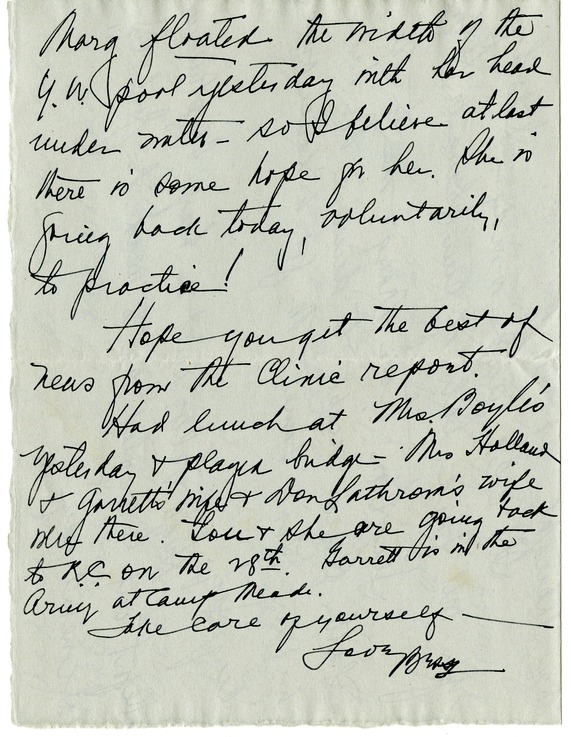 Marg floated the width of the
Y.W. pool yesterday with her head
under water - so I believe at last
there is some hope for her. She is
going back today, voluntarily,
to practice!
Hope you get the best of
news from the Clinic report.
Had lunch at Mrs. Boyle's
yesterday & played bridge - Mrs Holland
& Garrett's wife & Don Lathrom's wife
were there. Lou & she are going back
to K.C. on the 28th. Garrett is in the
Army at Camp Meade.
Take care of yourself -
Love